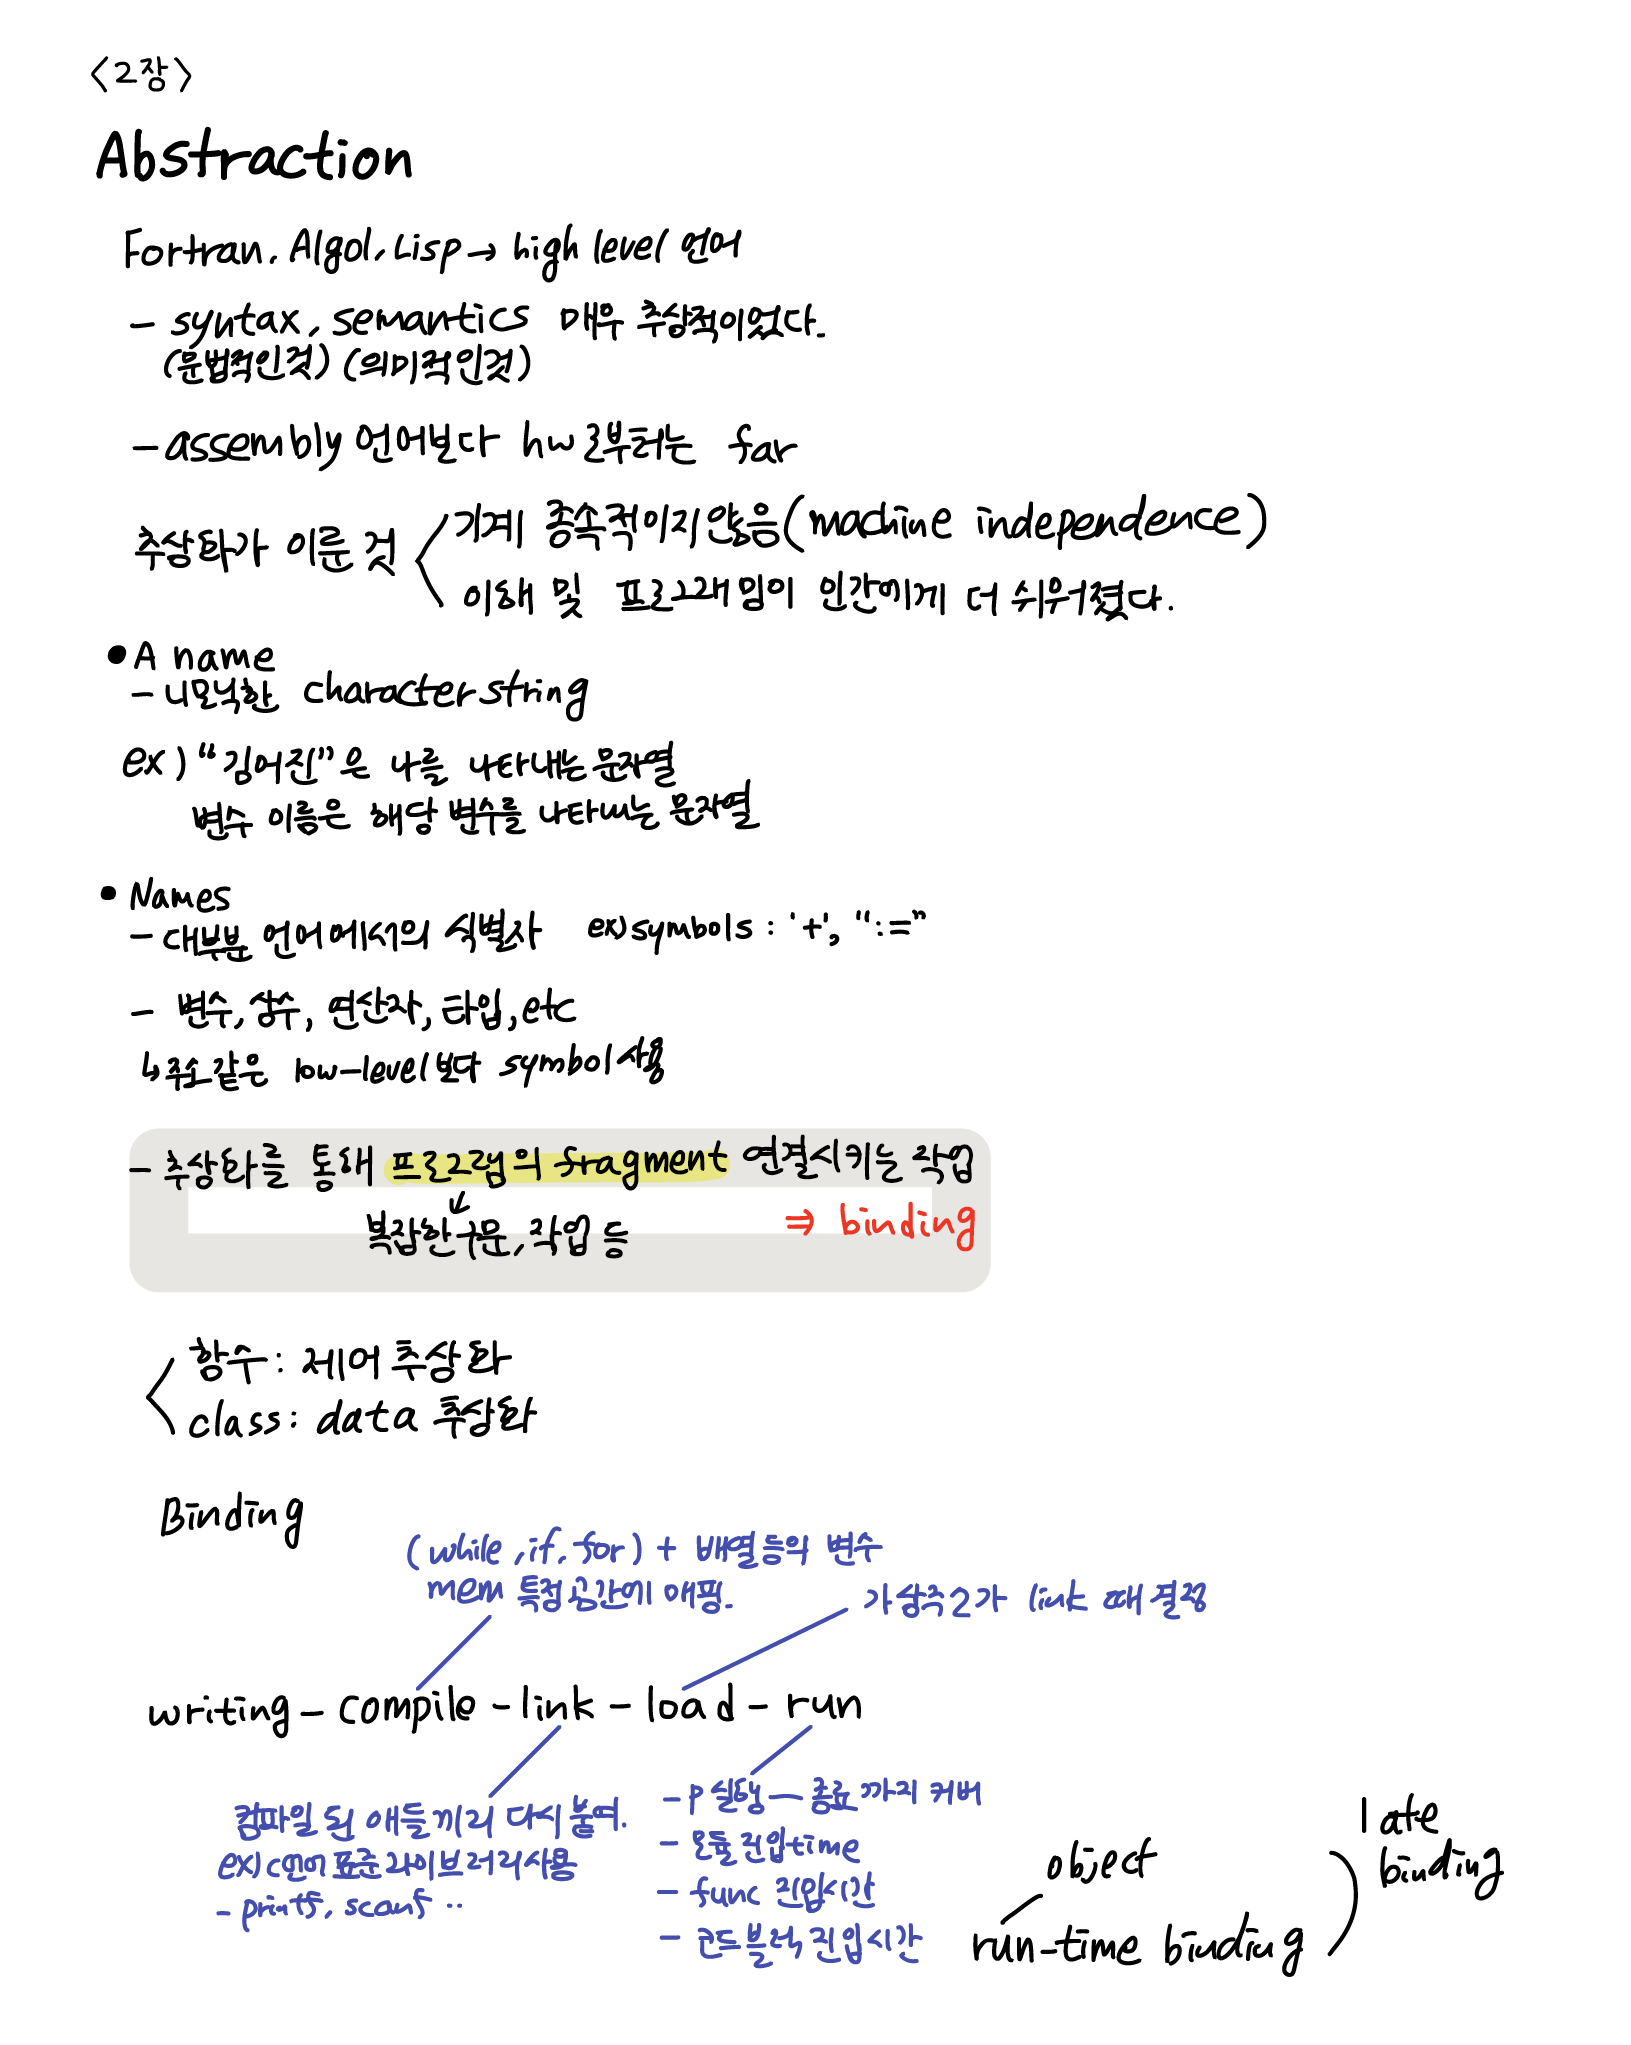 <2장>
Abstraction
Fortran, Algol, Lisp → high level 언어
- syntax, semantics 매우 추상적이었다.
(문법적인것) (의미적인것)
- assembly 언어보다 hw로부터는 far
추상화가 이룬 것
기계 종속적이지 않음 (machine independence)
이해 및 프로그래밍이 인간에게 더 쉬워졌다.
• A name
- 니모닉한 character string
ex) "김어진"은 나를 나타내는 문자열
변수 이름은 해당 변수를 나타내는 문자열
• Names
- 대부분 언어에서의 식별자 ex) symbols : '+', ":="
- 변수, 상수, 연산자, 타입, etc
↳ 주소같은 low-level보다 symbol 사용
- 추상화를 통해 프로그램의 fragment 연결시키는 작업
복잡한 구문, 작업 등 ⇒ binding
함수: 제어 추상화
class: data 추상화
Binding
(while, if, for) + 배열등의 변수
mem 특정공간에 매핑.
가상주소가 link 때 결정
writing - compile - link - load - run
컴파일 된 애들끼리 다시 붙여.
ex) c언어 표준라이브러리사용
- printf, scanf ..
- P 실행 — 종료까지 커버
- 모듈진입time
- func 진입시간
- 코드 블럭 진입시간
object
run-time binding
late
binding